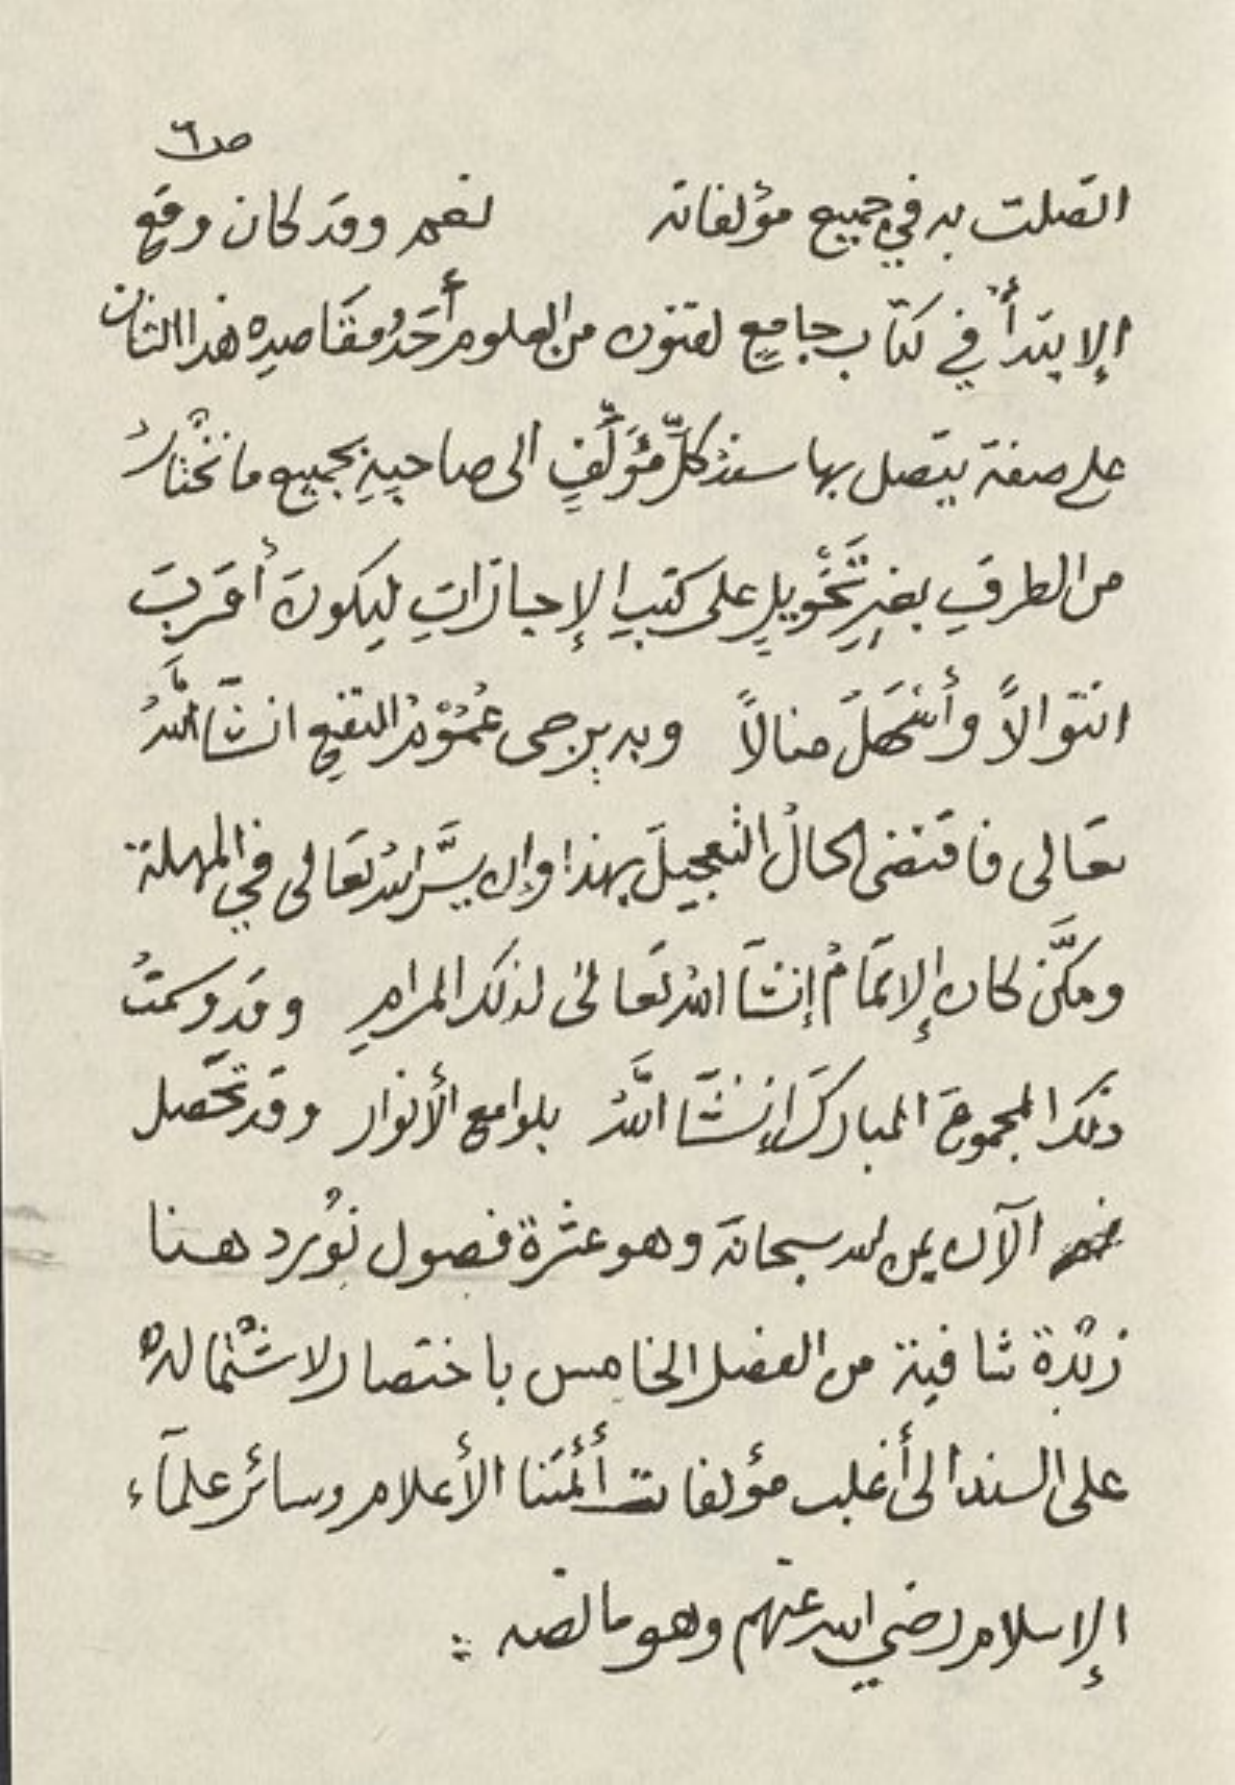 ص٦
اتّصلت به في جميع مؤلفاته نعم وقد كان وقع
الإبتدأ في كتاب جامعٍ لفنون من العلوم أحَدُ مقَاصدِه هذا الشان
على صفة يتّصل بها سندُ كلِّ مؤَلَّفٍ الى صاحبِهِ بجميع ما نخْتارُ
من الطرقِ بغيرِ تَحْويلٍ على كتبِ الإجازَاتِ ليكونَ أقربَ
انتوالاً وأسْهَلَ منالاً وبه يرجى عُمُوْمُ النفعِ انشآ اللهُ
تعَالى فاقتضى الحالُ التعجيلَ بهذا وإن يسَّر اللهُ تعَالى في المهلة
ومكَّن كان الإتمَامُ إنشآ اللهُ تعَالىٰ لذلك المرامِ وقد وسمتُ
ذلك المجموعَ المباركَ إنشَآ اللهُ بلوامع الأنوار وقد تحَصّل
الآن بمن الله سبحانه وهو عشرة فصول نُورد هنا
زبْدة شافية من الفصل الخامس باختصار لاشْتماله
على السند الى أغلب مؤلفات أئمتنا الأعلام وسائر علمآء
الإسلام رضي الله عنهم وهو ما لفظه :